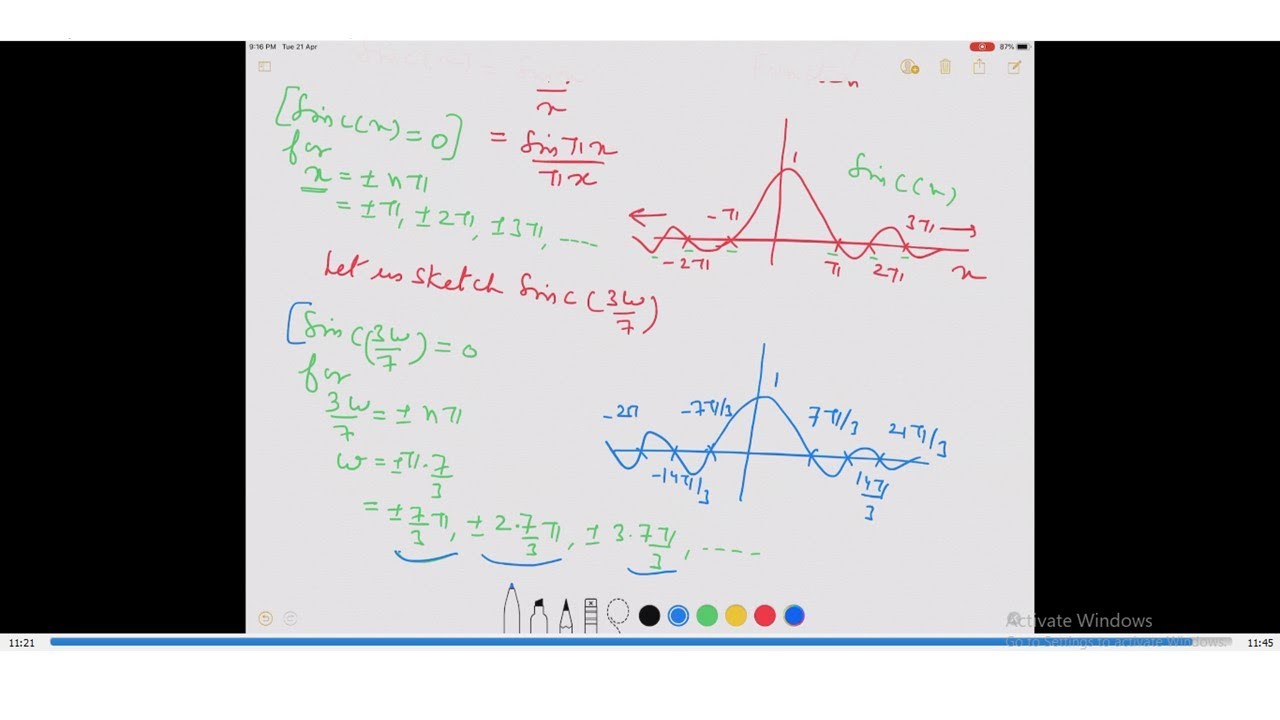 9:16 PM Tue 21 Apr
87%
[Sinc(x) = 0]
for
x = ± nπ
= ±π, ±2π, ±3π, ----
x
= Sin πx
πx
1
Sinc(x)
-π
3π
-2π
π
2π
x
Let us sketch Sinc(3ω/7)
[Sinc(3ω/7) = 0
for
3ω/7 = ± nπ
ω = ±π·7/3
= ±7/3 π, ± 2·7/3 π, ± 3·7π/3, ----
1
-7π/3
7π/3
21π/3
-14π/3
14π/3
Activate Windows
Go to Settings to activate Windows.
11:21
11:45